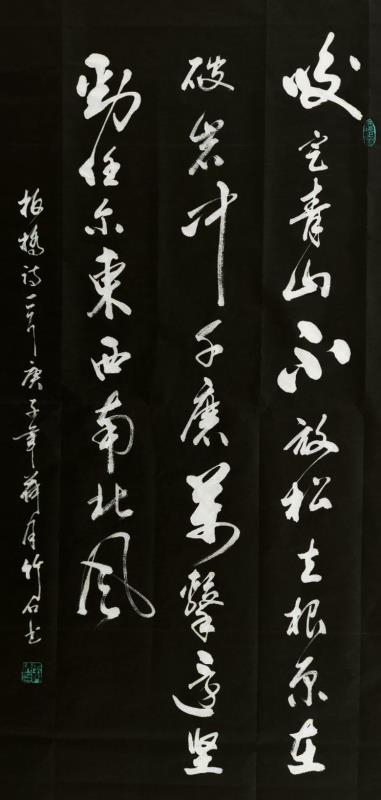 咬定青山不放松立根原在
破岩中千磨萬擊還坚
劲任尔東西南北风
板橋诗一首庚子年荷月竹石